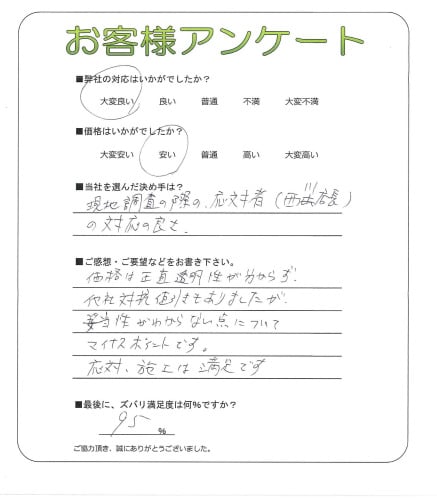 お客様アンケート
■弊社の対応はいかがでしたか？
大変良い 良い 普通 不満 大変不満
■価格はいかがでしたか？
大変安い 安い 普通 高い 大変高い
■当社を選んだ決め手は？
現地調査の際の、応対者(西川店長)
の対応の良さ、
■ご感想・ご要望などをお書き下さい。
価格は正直透明性が分からず、
他社対抗値引きもありましたが、
妥当性がわからない点について
マイナスポイントです。
応対、施工は満足です
■最後に、ズバリ満足度は何%ですか？
95 %
ご協力頂き、誠にありがとうございました。